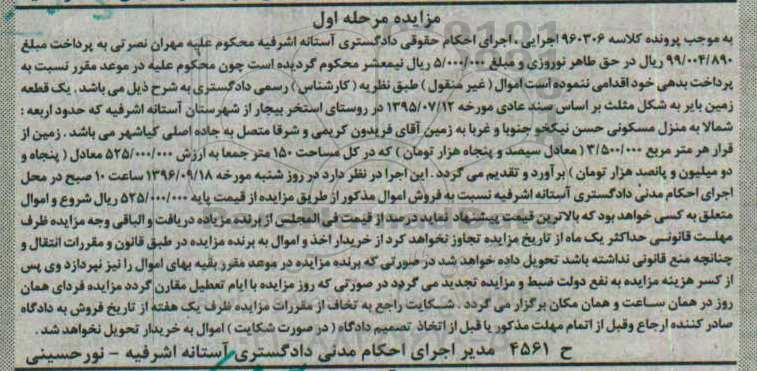 مزایده مرحله اول
به موجب پرونده کلاسه ۹۶۰۳۰۶ اجرایی ، اجرای احکام حقوقی دادگستری آستانه اشرفیه محکوم علیه مهران نصرتی به پرداخت مبلغ
۹۹/۰۰۴/۸۹۰ ریال در حق طاهر نوروزی و مبلغ ۵/۰۰۰/۰۰۰ ریال نیمعشر محکوم گردیده است چون محکوم علیه در موعد مقرر نسبت به
پرداخت بدهی خود اقدامی ننموده است اموال ( غیر منقول ) طبق نظریه ( کارشناس ) رسمی دادگستری به شرح ذیل می باشد . یک قطعه
زمین بایر به شکل مثلث بر اساس سند عادی مورخه ۱۳۹۵/۰۷/۱۲ در روستای استخر بیجار از شهرستان آستانه اشرفیه که حدود اربعه :
شمالا به منزل مسکونی حسن نیکخو جنوبا و غربا به زمین آقای فریدون کریمی و شرقا متصل به جاده اصلی کیاشهر می باشد . زمین از
قرار هر متر مربع ۳/۵۰۰/۰۰۰ ( معادل سیصد و پنجاه هزار تومان ) که در کل مساحت ۱۵۰ متر جمعا به ارزش ۵۲۵/۰۰۰/۰۰۰ معادل ( پنجاه و
دو میلیون و پانصد هزار تومان ) برآورد و تقدیم می گردد . این اجرا در نظر دارد در روز شنبه مورخه ۱۳۹۶/۰۹/۱۸ ساعت ۱۰ صبح در محل
اجرای احکام مدنی دادگستری آستانه اشرفیه نسبت به فروش اموال مذکور از طریق مزایده از قیمت پایه ۵۲۵/۰۰۰/۰۰۰ ریال شروع و اموال
متعلق به کسی خواهد بود که بالاترین قیمت پیشنهاد نماید درصد از قیمت فی المجلس از برنده مزیاده دریافت و الباقی وجه مزایده ظرف
مهلت قانونی حداکثر یک ماه از تاریخ مزایده تجاوز نخواهد کرد از خریدار اخذ و اموال به برنده مزایده در طبق قانون و مقررات انتقال و
چنانچه منع قانونی نداشته باشد تحویل داده خواهد شد در صورتی که برنده مزایده در موعد مقرر بقیه بهای اموال را نیز نپردازد وی پس
از کسر هزینه مزایده به نفع دولت ضبط و مزایده تجدید می گردد در صورتی که روز مزایده با ایام تعطیل مقارن گردد مزایده فردای همان
روز در همان ساعت و همان مکان برگزار می گردد . شکایت راجع به تخاف از مقررات مزایده ظرف یک هفته از تاریخ فروش به دادگاه
صادر کننده ارجاع وقبل از اتمام مهلت مذکور یا قبل از اتخاذ تصمیم دادگاه ( در صورت شکایت ) اموال به خریدار تحویل نخواهد شد .
ح ۴۵۶۱ مدیر اجرای احکام مدنی دادگستری آستانه اشرفیه - نورحسینی